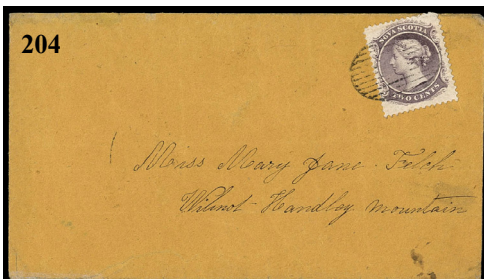 204
NOVA SCOTIA
TWO CENTS
Miss Mary Jane Felch
Wilmot Handley mountain